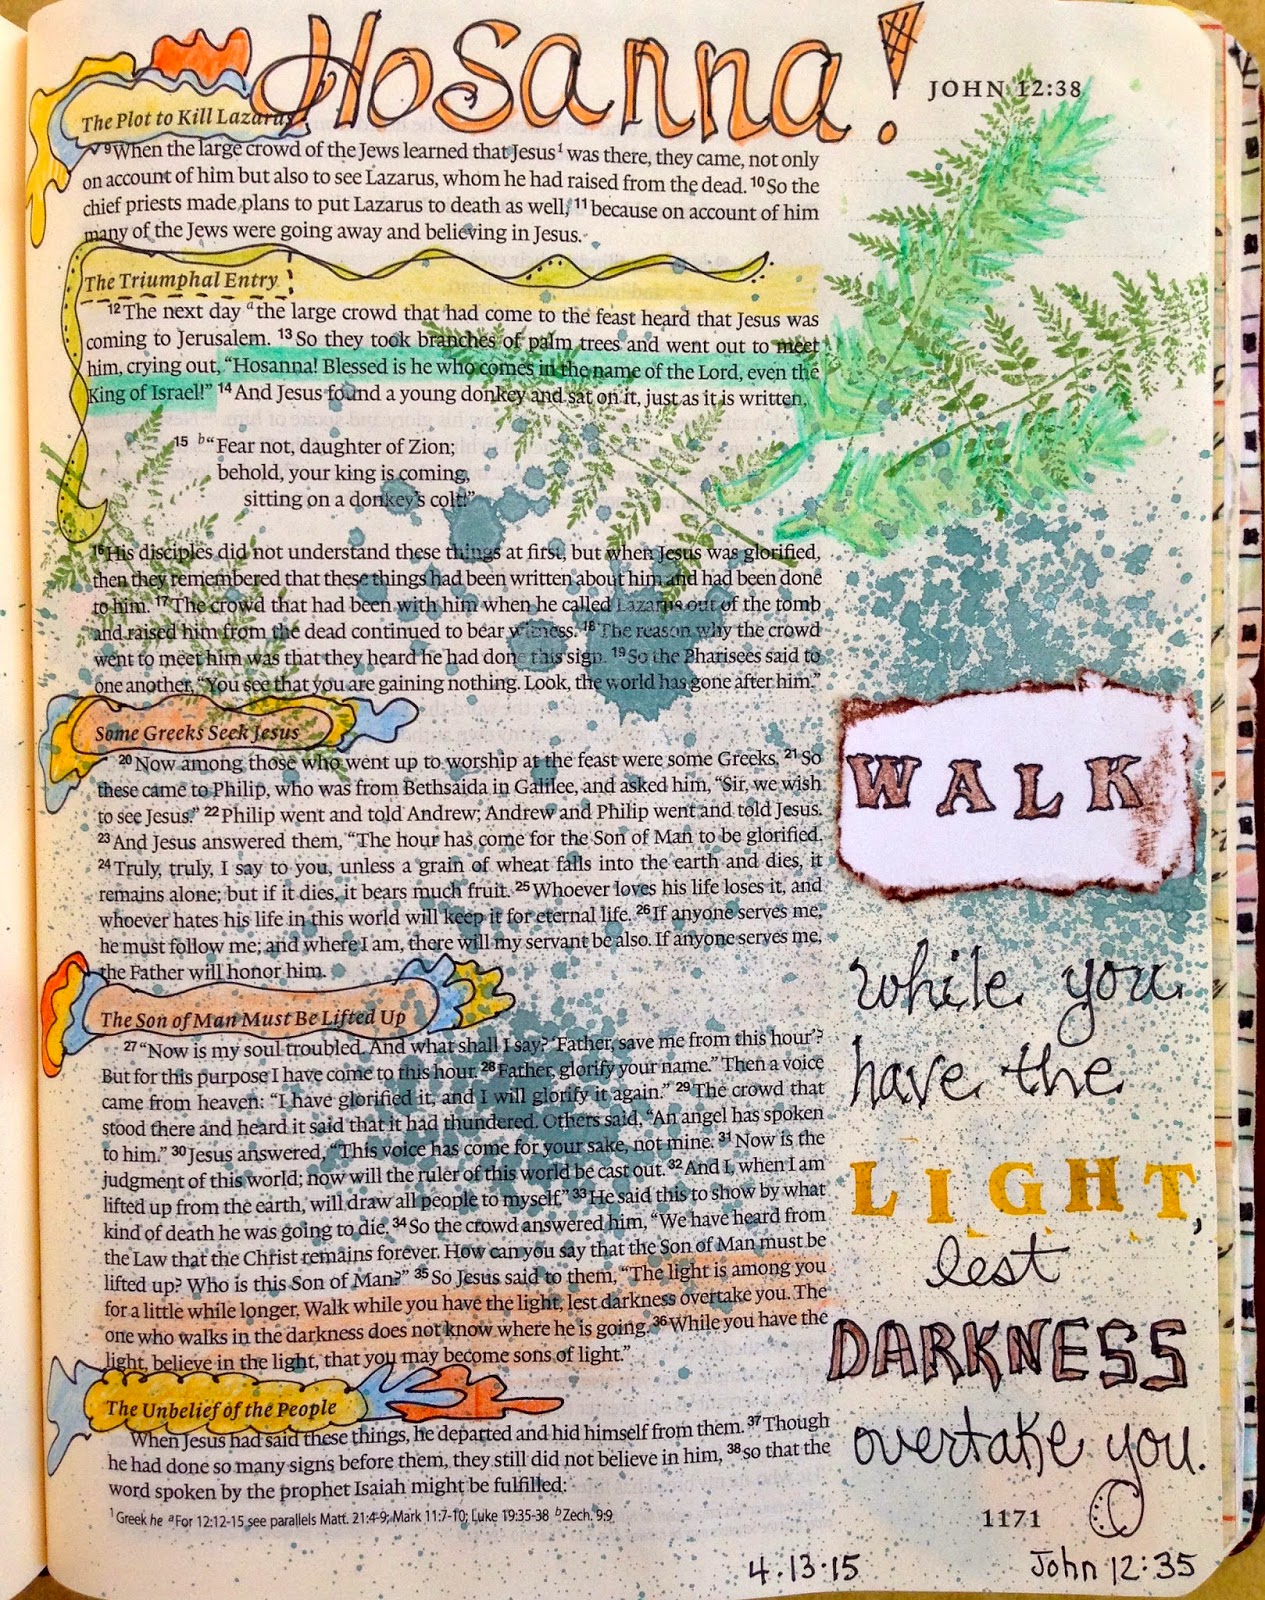 Hosanna!
JOHN 12:38
The Plot to Kill Lazarus
9 When the large crowd of the Jews learned that Jesus1 was there, they came, not only
on account of him but also to see Lazarus, whom he had raised from the dead. 10 So the
chief priests made plans to put Lazarus to death as well, 11 because on account of him
many of the Jews were going away and believing in Jesus.
The Triumphal Entry
12 The next day a the large crowd that had come to the feast heard that Jesus was
coming to Jerusalem. 13 So they took branches of palm trees and went out to meet
him, crying out, “Hosanna! Blessed is he who comes in the name of the Lord, even the
King of Israel!” 14 And Jesus found a young donkey and sat on it, just as it is written,
15 b “Fear not, daughter of Zion;
behold, your king is coming,
sitting on a donkey’s colt!”
16 His disciples did not understand these things at first, but when Jesus was glorified,
then they remembered that these things had been written about him and had been done
to him. 17 The crowd that had been with him when he called Lazarus out of the tomb
and raised him from the dead continued to bear witness. 18 The reason why the crowd
went to meet him was that they heard he had done this sign. 19 So the Pharisees said to
one another, “You see that you are gaining nothing. Look, the world has gone after him.”
Some Greeks Seek Jesus
20 Now among those who went up to worship at the feast were some Greeks. 21 So
these came to Philip, who was from Bethsaida in Galilee, and asked him, “Sir, we wish
to see Jesus.” 22 Philip went and told Andrew; Andrew and Philip went and told Jesus.
23 And Jesus answered them, “The hour has come for the Son of Man to be glorified.
24 Truly, truly, I say to you, unless a grain of wheat falls into the earth and dies, it
remains alone; but if it dies, it bears much fruit. 25 Whoever loves his life loses it, and
whoever hates his life in this world will keep it for eternal life. 26 If anyone serves me,
he must follow me; and where I am, there will my servant be also. If anyone serves me,
the Father will honor him.
The Son of Man Must Be Lifted Up
27 “Now is my soul troubled. And what shall I say? ‘Father, save me from this hour’?
But for this purpose I have come to this hour. 28 Father, glorify your name.” Then a voice
came from heaven: “I have glorified it, and I will glorify it again.” 29 The crowd that
stood there and heard it said that it had thundered. Others said, “An angel has spoken
to him.” 30 Jesus answered, “This voice has come for your sake, not mine. 31 Now is the
judgment of this world; now will the ruler of this world be cast out. 32 And I, when I am
lifted up from the earth, will draw all people to myself.” 33 He said this to show by what
kind of death he was going to die. 34 So the crowd answered him, “We have heard from
the Law that the Christ remains forever. How can you say that the Son of Man must be
lifted up? Who is this Son of Man?” 35 So Jesus said to them, “The light is among you
for a little while longer. Walk while you have the light, lest darkness overtake you. The
one who walks in the darkness does not know where he is going. 36 While you have the
light, believe in the light, that you may become sons of light.”
The Unbelief of the People
When Jesus had said these things, he departed and hid himself from them. 37 Though
he had done so many signs before them, they still did not believe in him, 38 so that the
word spoken by the prophet Isaiah might be fulfilled:
1 Greek he a For 12:12-15 see parallels Matt. 21:4-9; Mark 11:7-10; Luke 19:35-38 b Zech. 9:9
WALK
while you
have the
LIGHT,
lest
DARKNESS
overtake you.
1171
4.13.15
John 12:35